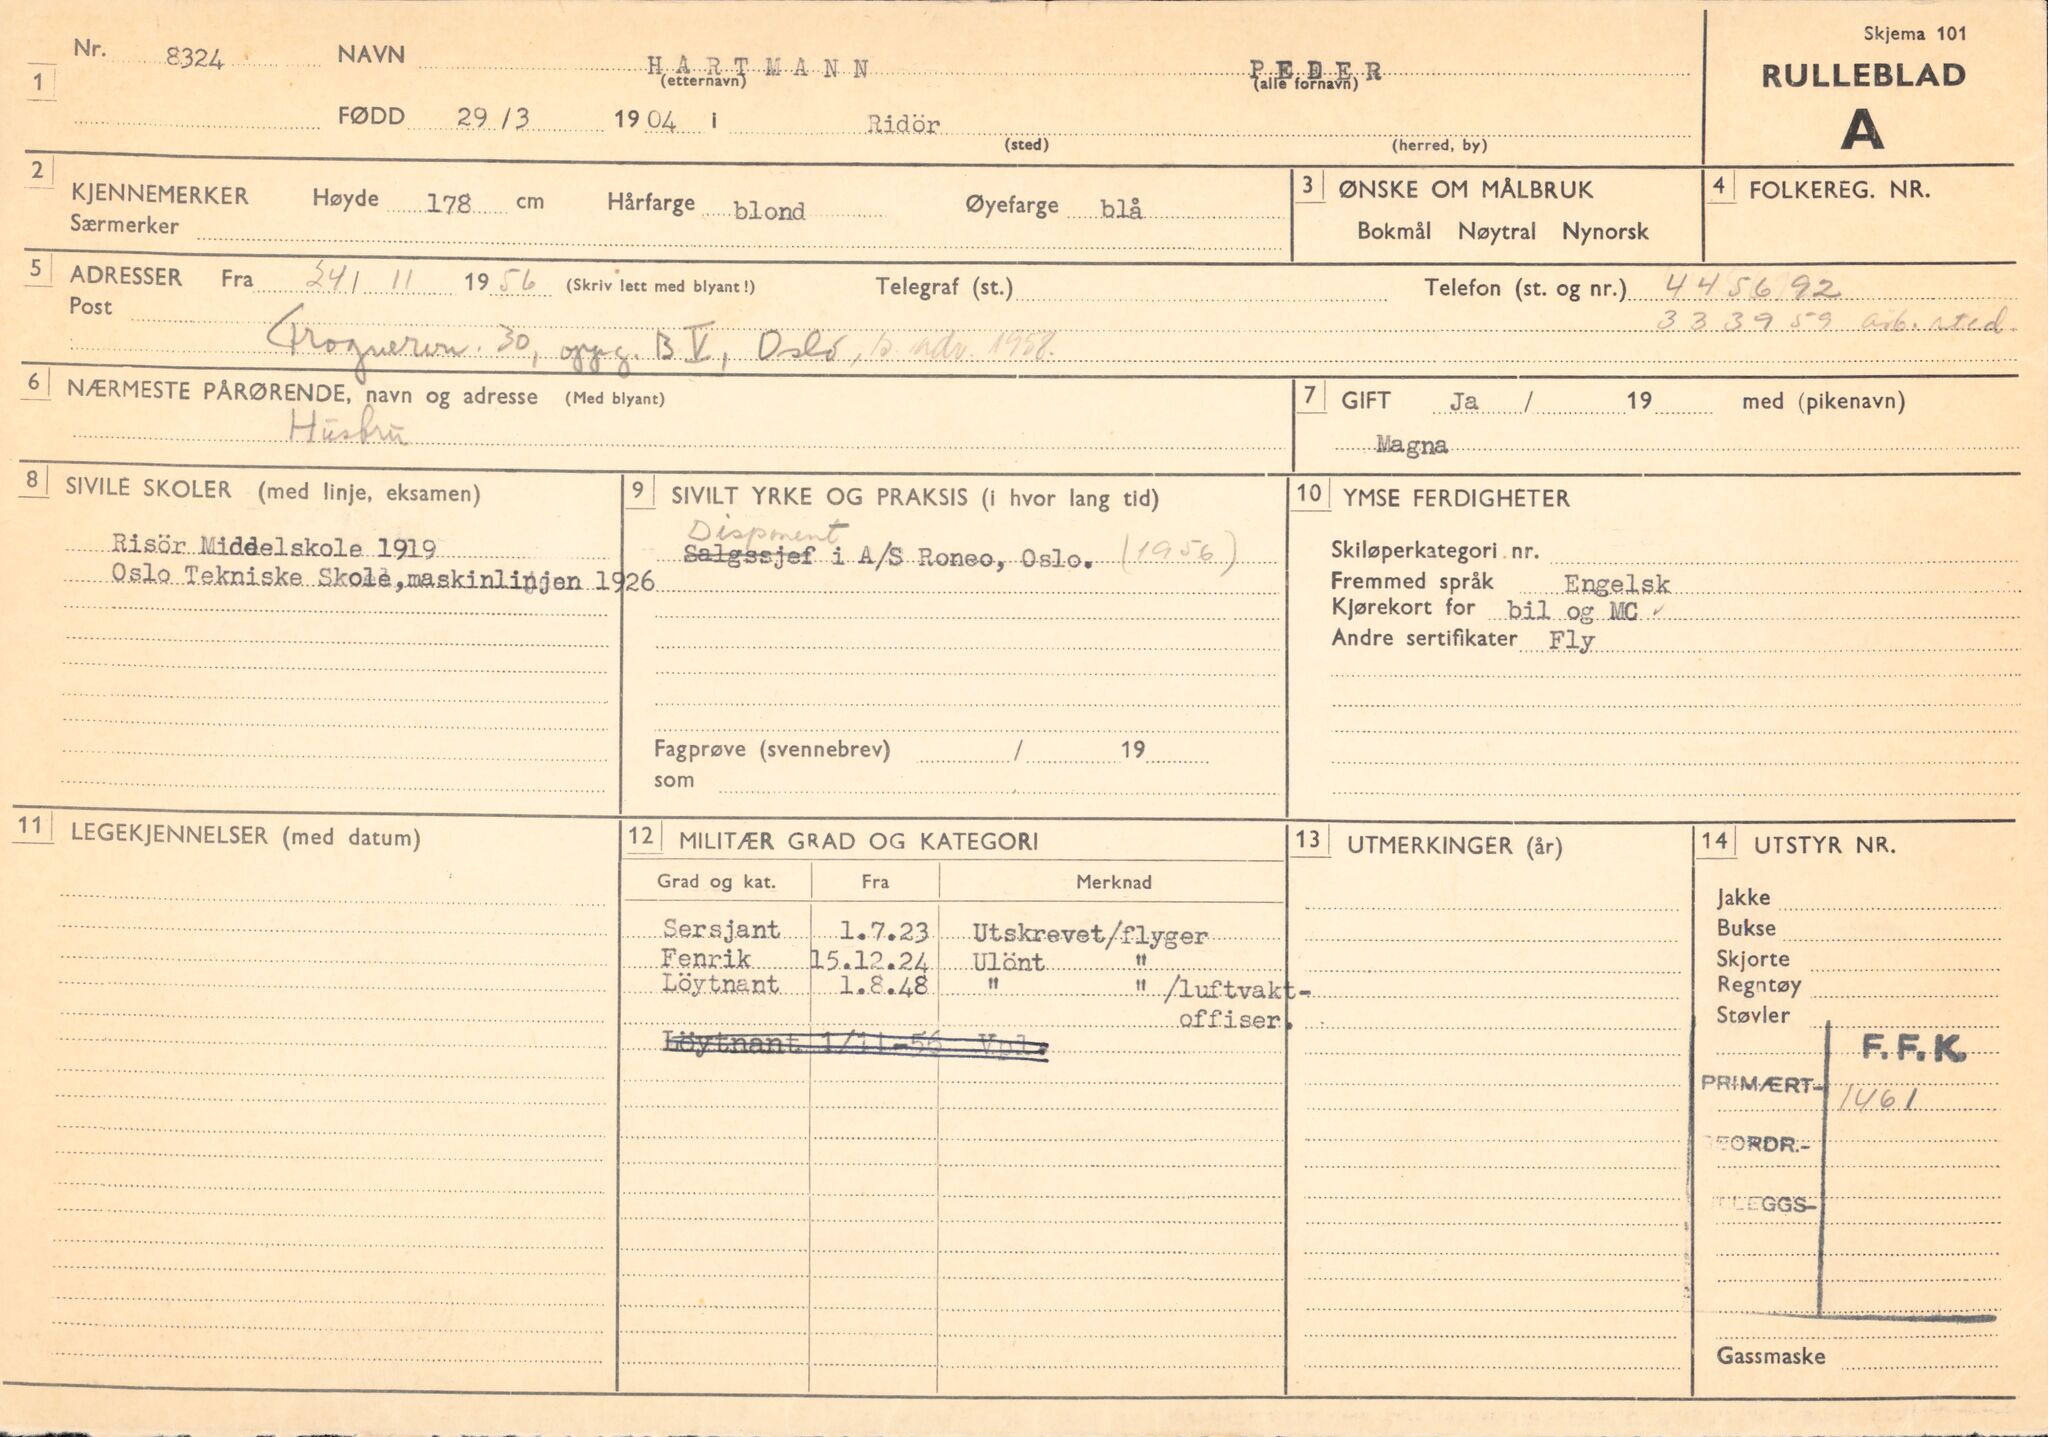 Skjema 101
RULLEBLAD
A
1 Nr. 8324 NAVN HARTMANN PEDER
(etternavn) (alle fornavn)
FØDD 29/3 1904 i Ridör
(sted) (herred, by)
2 KJENNEMERKER Høyde 178 cm Hårfarge blond Øyefarge blå
Særmerker
3 ØNSKE OM MÅLBRUK
Bokmål Nøytral Nynorsk
4 FOLKEREG. NR.
5 ADRESSER Fra 24/ 11 1956 (Skriv lett med blyant!) Telegraf (st.) Telefon (st. og nr.) 445692
Post 333959 arb. sted.
30, oppg. B V, Oslo, 1958.
6 NÆRMESTE PÅRØRENDE, navn og adresse (Med blyant)
Husfru
7 GIFT Ja / 19 med (pikenavn)
Magna
8 SIVILE SKOLER (med linje, eksamen)
Risör Middelskole 1919
Oslo Tekniske Skole, maskinlinjen 1926
9 SIVILT YRKE OG PRAKSIS (i hvor lang tid)
Disponent
Salgssjef i A/S Roneo, Oslo. (1956)
Fagprøve (svennebrev) / 19
som
10 YMSE FERDIGHETER
Skiløperkategori nr.
Fremmed språk Engelsk
Kjørekort for bil og MC
Andre sertifikater Fly
11 LEGEKJENNELSER (med datum)
12 MILITÆR GRAD OG KATEGORI
Grad og kat. Fra Merknad
Sersjant 1.7.23 Utskrevet/flyger
Fenrik 15.12.24 Ulönt "
Löytnant 1.8.48 " " /luftvakt-
offiser.
Löytnant 1/11-56 Vpl.
13 UTMERKINGER (år)
14 UTSTYR NR.
Jakke
Bukse
Skjorte
Regntøy
Støvler
F.F.K.
PRIMÆRT- 1461
BEORDR.-
LLEGGS-
Gassmaske